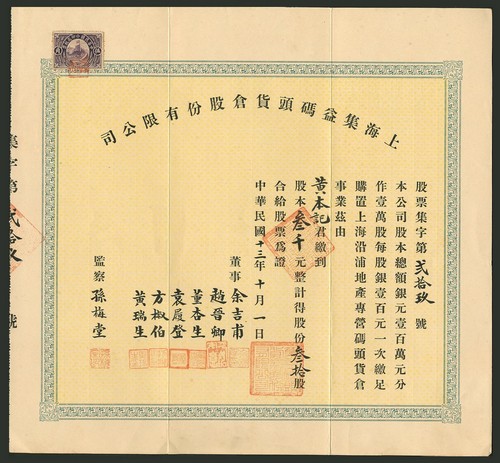 上海集益碼頭貨倉股份有限公司
股票集字第貳拾玖號
本公司股本總額銀元壹百萬元分
作壹萬股每股銀壹百元一次繳足
購置上海沿浦地產專營碼頭貨倉
事業茲由
黃本記君繳到
股本叁千元整計得股份叁拾股
合給股票爲證
中華民國十三年十月一日
董事余吉甫
趙晉卿
董杏生
袁履登
方椒伯
黃瑞生
監察孫梅堂
集字第貳拾玖號